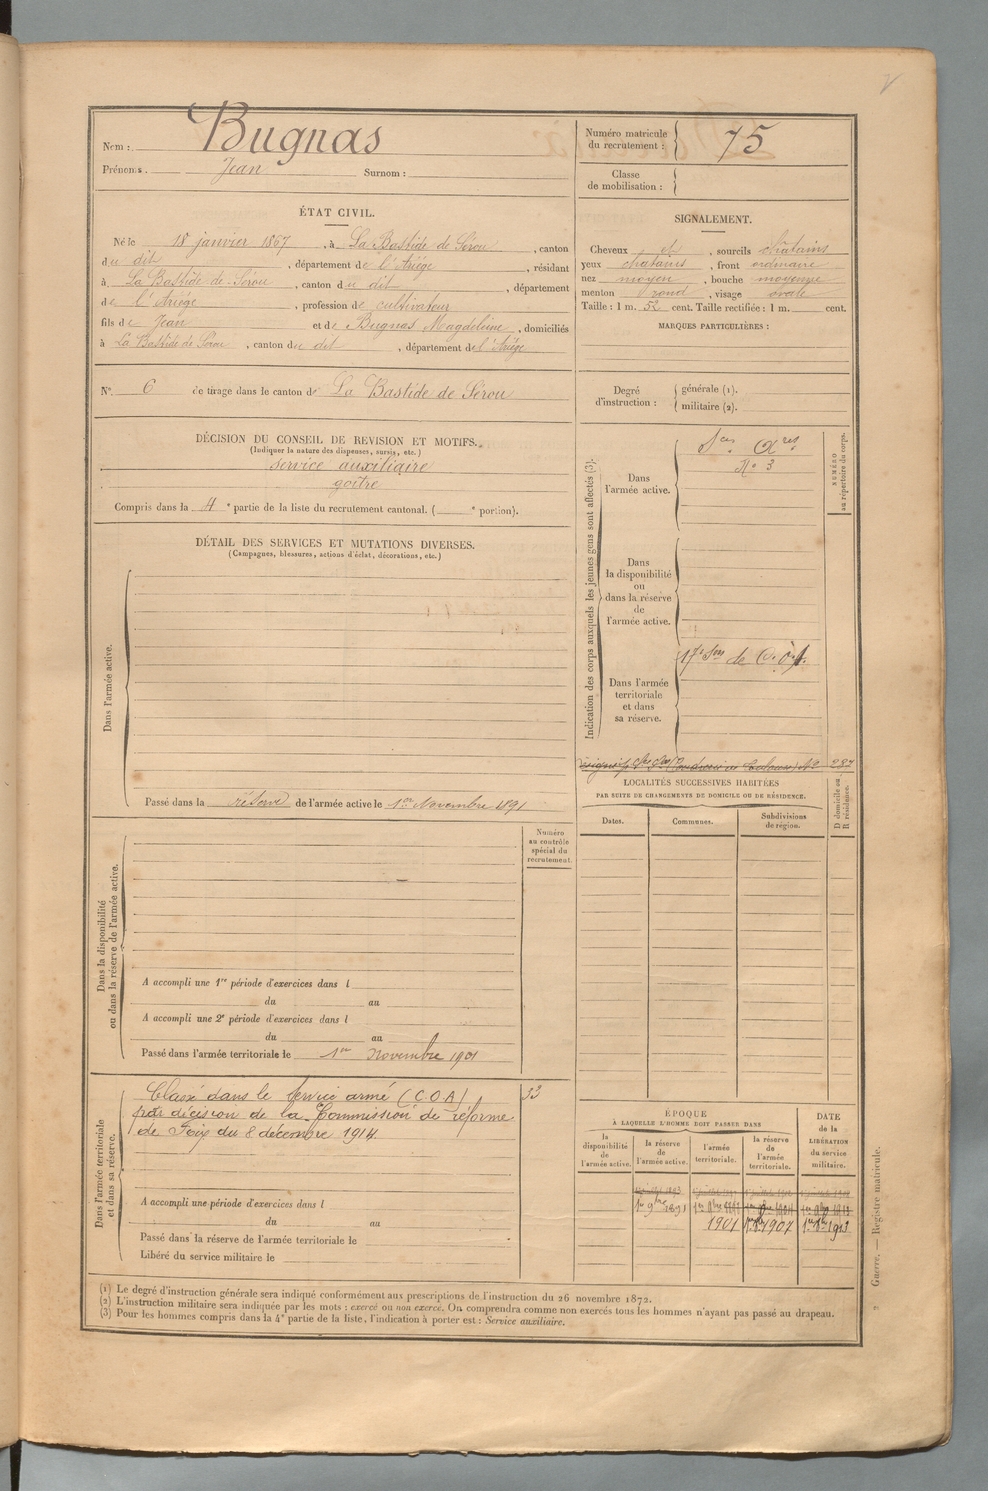 Nom : Bugnas
Prénoms. Jean Surnom :
Numéro matricule du recrutement : 75
Classe de mobilisation :
ÉTAT CIVIL.
Né le 18 janvier 1867, à La Bastide de Sérou, canton
du dit, département de l'Ariège, résidant
à La Bastide de Sérou, canton du dit, département
de l'Ariège, profession de cultivateur
fils de Jean et de Bugnas Magdeleine, domiciliés
à La Bastide de Sérou, canton du dit, département de l'Ariège
SIGNALEMENT.
Cheveux et, sourcils châtains
yeux chatains, front ordinaire
nez moyen, bouche moyenne
menton rond, visage ovale
Taille : 1 m. 52 cent. Taille rectifiée : 1 m. cent.
MARQUES PARTICULIÈRES :
N° 6 de tirage dans le canton de La Bastide de Sérou
Degré d'instruction : générale (1).
militaire (2).
DÉCISION DU CONSEIL DE REVISION ET MOTIFS.
(Indiquer la nature des dispenses, sursis, etc.)
service auxiliaire
goître
Compris dans la 4e partie de la liste du recrutement cantonal. ( e portion).
Indication des corps auxquels les jeunes gens sont affectés (3).
NUMÉRO
au répertoire du corps.
Dans
l'armée active.
Sces Axres
N° 3
Dans
la disponibilité
ou
dans la réserve
de
l'armée active.
Dans l'armée
territoriale
et dans
sa réserve.
17e Son de C.O.A.
N° 287
DÉTAIL DES SERVICES ET MUTATIONS DIVERSES.
(Campagnes, blessures, actions d'éclat, décorations, etc.)
Dans l'armée active.
Passé dans la réserve de l'armée active le 1er Novembre 1891
LOCALITÉS SUCCESSIVES HABITÉES
PAR SUITE DE CHANGEMENTS DE DOMICILE OU DE RÉSIDENCE.
D domicile ou
R résidence.
Dates. Communes. Subdivisions
de région.
Dans la disponibilité
ou dans la réserve de l'armée active.
Numéro
au contrôle
spécial du
recrutement.
A accompli une 1re période d'exercices dans l
du au
A accompli une 2e période d'exercices dans l
du au
Passé dans l'armée territoriale le 1er Novembre 1901
Dans l'armée territoriale
et dans sa réserve.
Classé dans le service armé (C.O.A) 33
par décision de la Commission de réforme
de Foix du 8 décembre 1914.
A accompli une période d'exercices dans l
du au
Passé dans la réserve de l'armée territoriale le
Libéré du service militaire le
ÉPOQUE
À LAQUELLE L'HOMME DOIT PASSER DANS
la
disponibilité
de
l'armée active.
la réserve
de
l'armée active.
l'armée
territoriale.
la réserve
de
l'armée
territoriale.
DATE
de la
LIBÉRATION
du service
militaire.
1er 9bre 1891
1901 1er 9bre 1907 1er 9bre 1913
(1) Le degré d'instruction générale sera indiqué conformément aux prescriptions de l'instruction du 26 novembre 1872.
(2) L'instruction militaire sera indiquée par les mots : exercé ou non exercé. On comprendra comme non exercés tous les hommes n'ayant pas passé au drapeau.
(3) Pour les hommes compris dans la 4e partie de la liste, l'indication à porter est : Service auxiliaire.
Guerre. — Registre matricule.